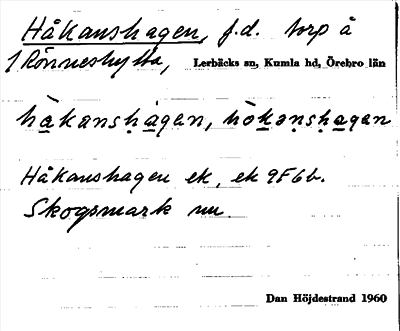 Håkanshagen, f.d. torp å
1 Rönneshytta, Lerbäcks sn, Kumla hd, Örebro län
håkansḥa̲gen, hȯk̲anṣḥa̲gen
Håkanshagen ek, ek 9F6b.
Skogsmark nu.
Dan Höjdestrand 1960